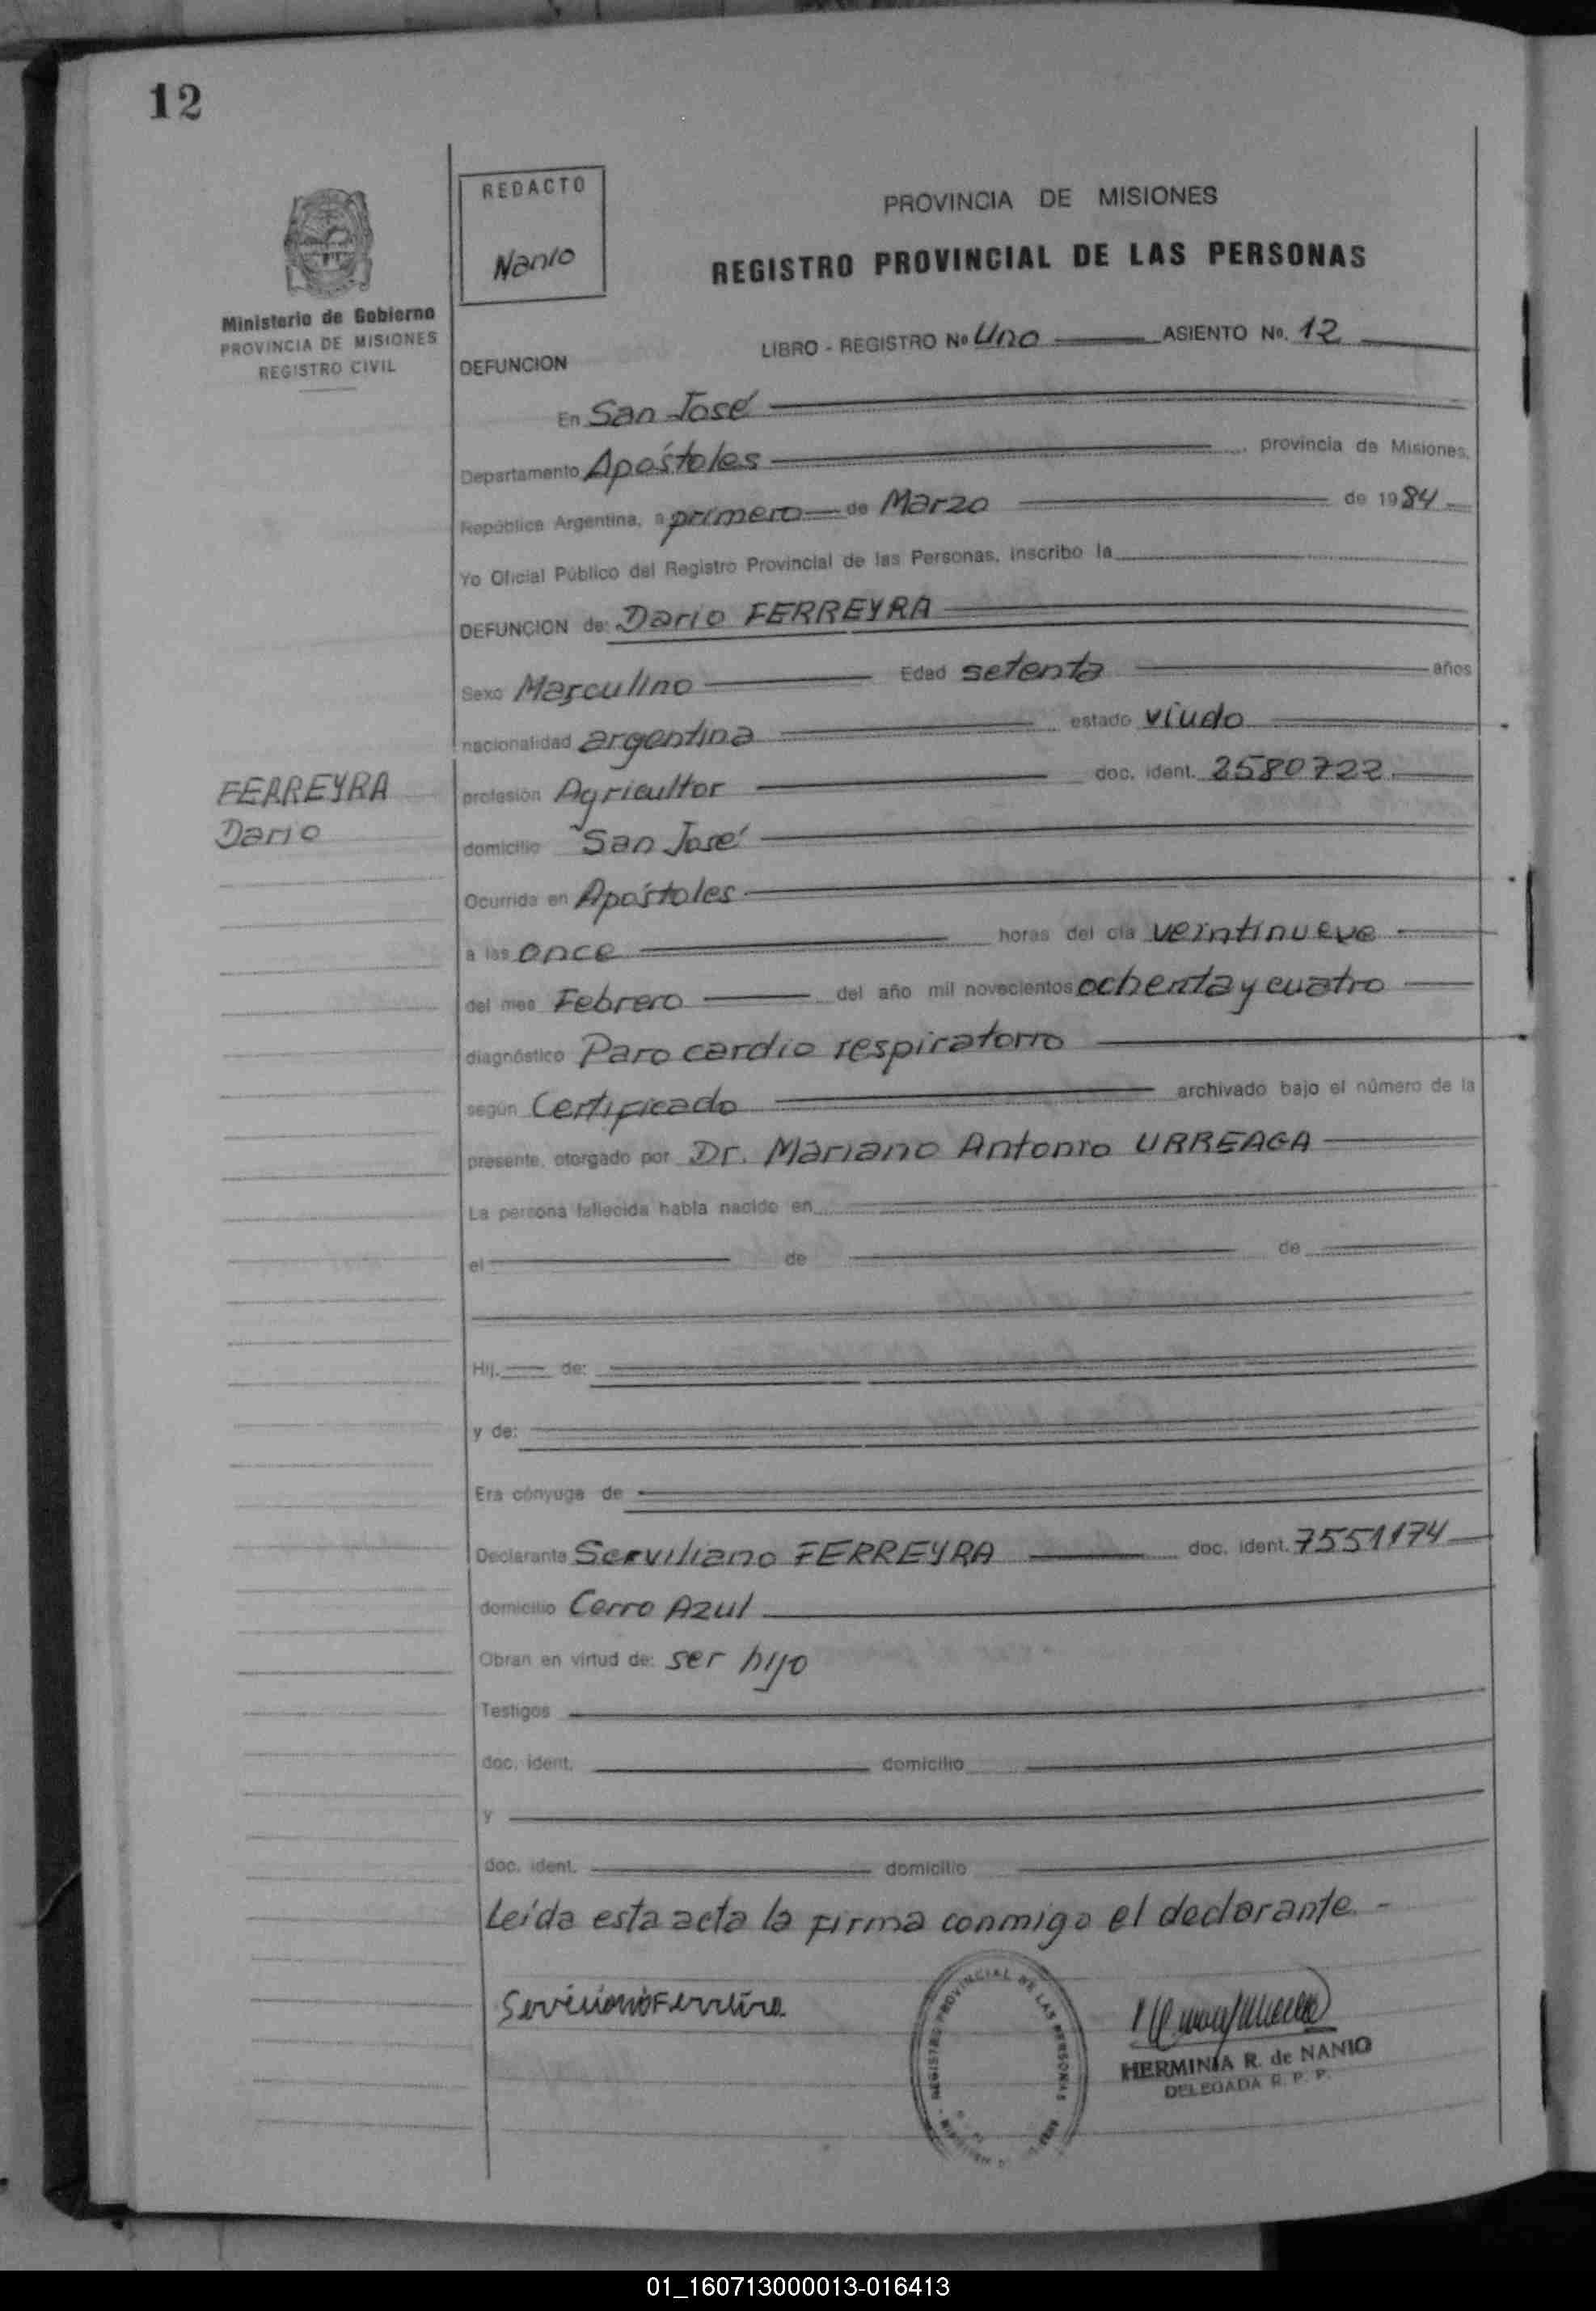 12
REDACTO
Nanio
Ministerio de Gobierno
PROVINCIA DE MISIONES
REGISTRO CIVIL
PROVINCIA DE MISIONES
REGISTRO PROVINCIAL DE LAS PERSONAS
LIBRO - REGISTRO Nº Uno ASIENTO Nº. 12
DEFUNCION
En San José
Departamento Apóstoles provincia de Misiones,
República Argentina, a primero de Marzo de 1984
Yo Oficial Público del Registro Provincial de las Personas, inscribo la
DEFUNCION de: Dario FERREYRA
Sexo Masculino Edad setenta años
nacionalidad argentina estado viudo
FERREYRA
Dario
profesión Agricultor doc. ident. 2580722
domicilio San José
Ocurrida en Apóstoles
a las once horas del día veintinueve
del mes Febrero del año mil novecientos ochenta y cuatro
diagnóstico Paro cardio respiratorio
según Certificado archivado bajo el número de la
presente, otorgado por Dr. Mariano Antonio URREAGA
La persona fallecida había nacido en
el de de
Hij. de:
y de:
Era cónyuge de
Declarante Serviliano FERREYRA doc. ident. 7551174
domicilio Cerro Azul
Obran en virtud de: ser hijo
Testigos
doc. ident. domicilio
y
doc. ident. domicilio
Leída esta acta la firma conmigo el declarante. -
REGISTRO PROVINCIAL DE LAS PERSONAS
HERMINIA R. de NANIO
DELEGADA R. P. P.
01_160713000013-016413